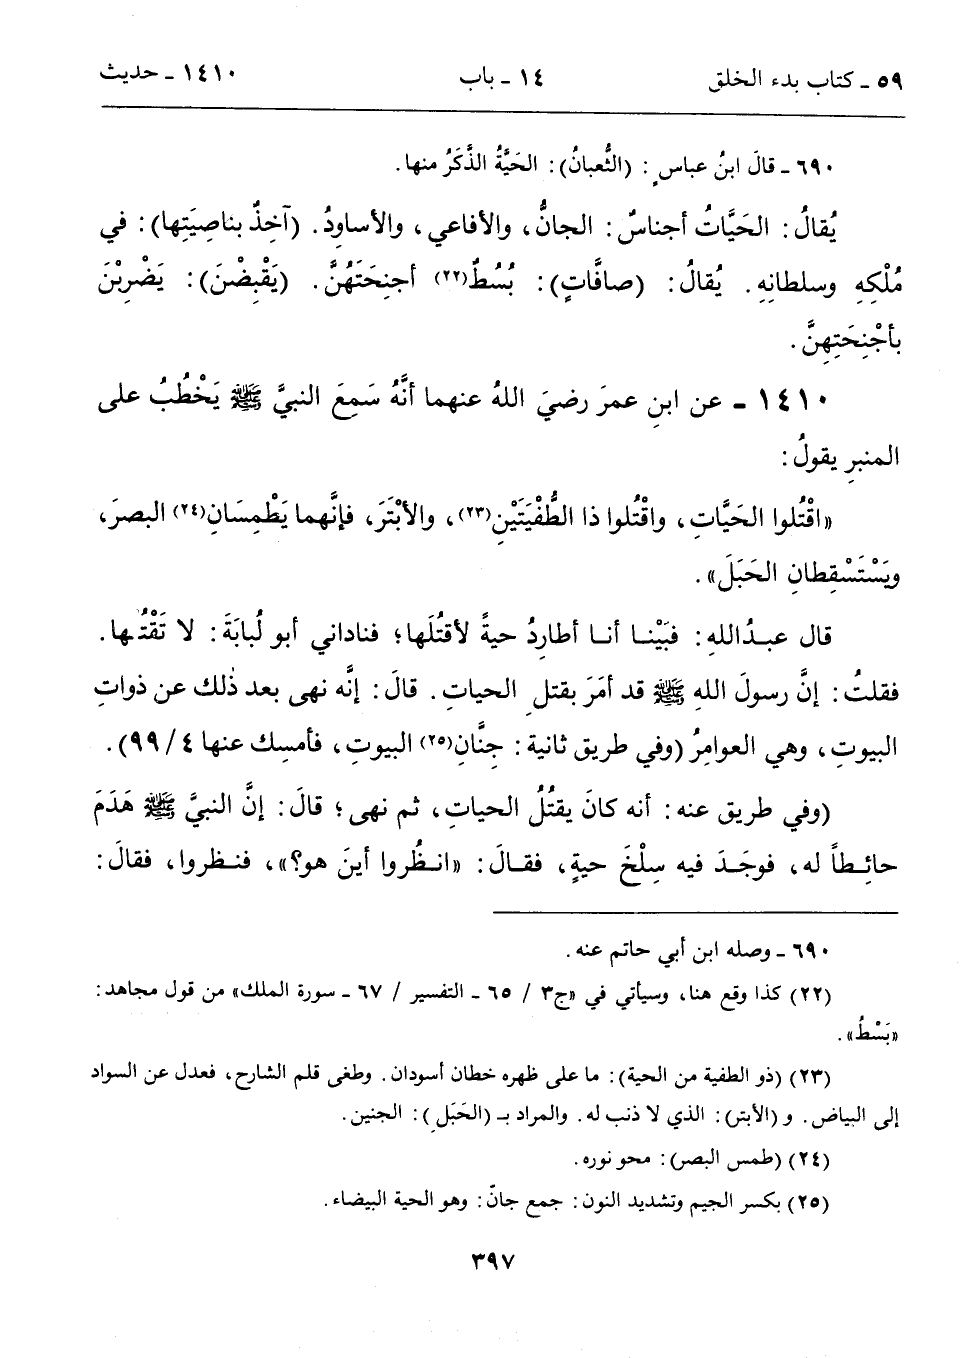 ٥٩ ـ كتاب بدء الخلق ١٤ ـ باب ١٤١٠ ـ حديث
٦٩٠ ـ قالَ ابنُ عباسٍ: (الثُّعبانُ): الحَيَّةُ الذَّكَرُ منها.
يُقالُ: الحَيَّاتُ أجناسٌ: الجانُّ، والأفاعي، والأساودُ. (آخِذٌ بناصِيَتِها): في
مُلْكِهِ وسلطانِهِ. يُقالُ: (صافَّاتٍ): بُسُطٌ(٢٢) أجنِحَتَهُنَّ. (يَقْبِضْنَ): يَضْرِبْنَ
بأجْنِحَتِهِنَّ.
١٤١٠ ـ عن ابنِ عمرَ رضيَ اللهُ عنهما أنَّهُ سَمِعَ النبيَّ ﷺ يَخْطُبُ على
المنبرِ يقولُ:
«اقْتُلوا الحَيَّاتِ، واقْتُلوا ذا الطُّفْيَتَيْنِ(٢٣)، والأبْتَرَ، فإنَّهما يَطْمِسَانِ(٢٤) البصرَ،
ويَسْتَسْقِطانِ الحَبَلَ».
قال عبدُاللهِ: فبَيْنا أنا أطارِدُ حيةً لأقتُلَها؛ فناداني أبو لُبابَةَ: لا تَقْتُلها.
فقلتُ: إنَّ رسولَ اللهِ ﷺ قد أمَرَ بقتلِ الحياتِ. قالَ: إنَّه نهى بعد ذٰلك عن ذواتِ
البيوتِ، وهي العوامِرُ (وفي طريق ثانية: جِنَّانِ(٢٥) البيوتِ، فأمسِك عنها ٤/ ٩٩).
(وفي طريق عنه: أنه كانَ يقتُلُ الحياتِ، ثم نهى؛ قالَ: إنَّ النبيَّ ﷺ هَدَمَ
حائِطاً له، فوجَدَ فيه سِلْخَ حيةٍ، فقالَ: «انظُروا أينَ هو؟»، فنظروا، فقالَ:
٦٩٠ ـ وصله ابن أبي حاتم عنه.
(٢٢) كذا وقع هنا، وسيأتي في «ج٣ / ٦٥ ـ التفسير / ٦٧ ـ سورة الملك» من قول مجاهد:
«بَسْطُ».
(٢٣) (ذو الطفية من الحية): ما على ظهره خطان أسودان. وطغى قلم الشارح، فعدل عن السواد
إلى البياض. و (الأبتر): الذي لا ذنب له. والمراد بـ (الحَبَلِ): الجنين.
(٢٤) (طمس البصر): محو نوره.
(٢٥) بكسر الجيم وتشديد النون: جمع جانّ: وهو الحية البيضاء.
٣٩٧